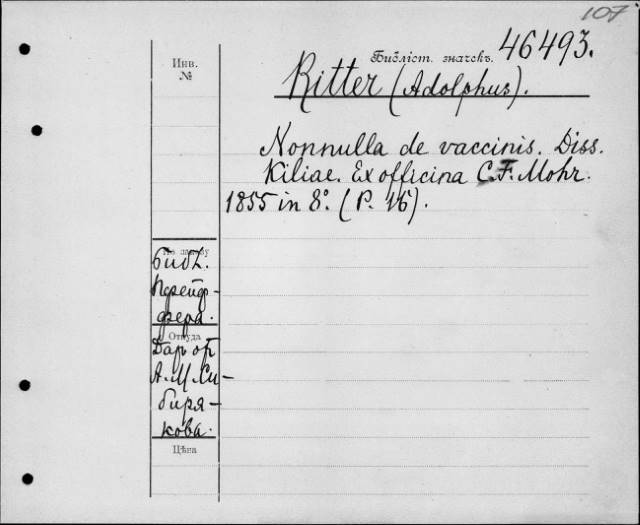 107
Инв.
№
Библіст. значекъ. 46493.
Ritter (Adolphus).
Nonnulla de vaccinis. Diss.
Kiliae. Ex officina C. F. Mohr.
1855 in 8°. (P. 16).
Библ.
Пфейф-
фера.
Откуда
Даръ от
А. М. Си-
биря-
кова.
Цѣна